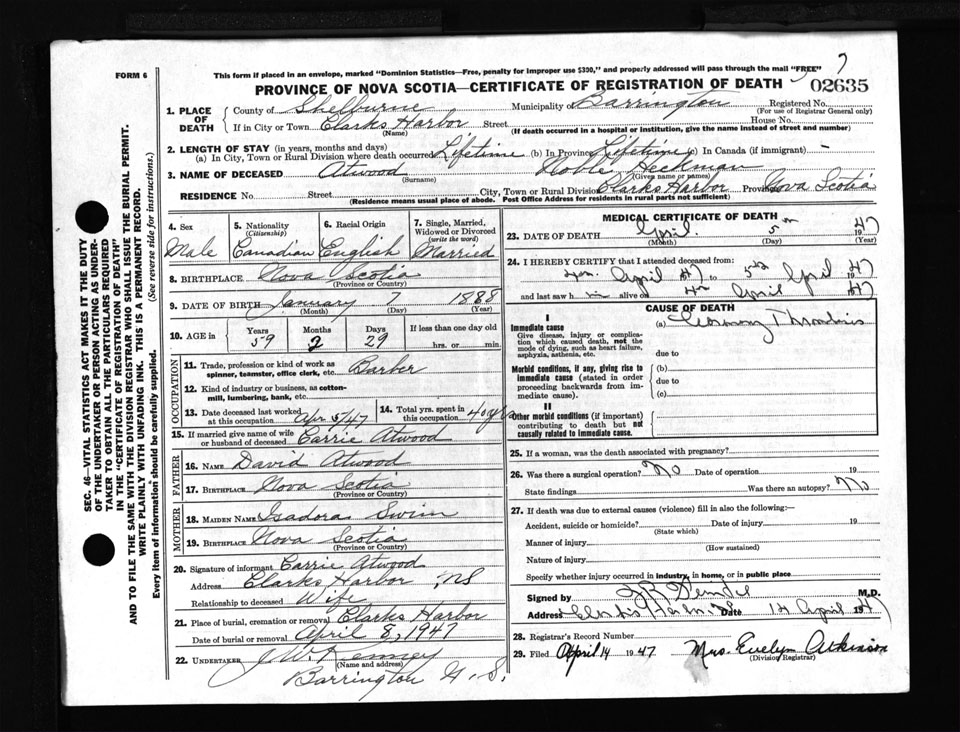 FORM 6
This form if placed in an envelope, marked "Dominion Statistics—Free, penalty for improper use $300," and properly addressed will pass through the mail "FREE"
7
PROVINCE OF NOVA SCOTIA—CERTIFICATE OF REGISTRATION OF DEATH
02635
1. PLACE OF DEATH
County of Shelburne Municipality of Barrington Registered No.
(For use of Registrar General only)
If in City or Town Clarks Harbor Street House No.
(Name) (If death occurred in a hospital or institution, give the name instead of street and number)
2. LENGTH OF STAY (in years, months and days)
(a) In City, Town or Rural Division where death occurred Lifetime (b) In Province Lifetime (c) In Canada (if immigrant) —
3. NAME OF DECEASED Atwood Noble Heckman
(Surname) (Given name or names)
RESIDENCE No. Street City, Town or Rural Division Clarks Harbor Province Nova Scotia
(Residence means usual place of abode. Post Office Address for residents in rural parts not sufficient)
SEC. 46—VITAL STATISTICS ACT MAKES IT THE DUTY
OF THE UNDERTAKER OR PERSON ACTING AS UNDER-
TAKER TO OBTAIN ALL THE PARTICULARS REQUIRED
IN THE "CERTIFICATE OF REGISTRATION OF DEATH"
AND TO FILE THE SAME WITH THE DIVISION REGISTRAR WHO SHALL ISSUE THE BURIAL PERMIT.
WRITE PLAINLY WITH UNFADING INK. THIS IS A PERMANENT RECORD.
Every item of information should be carefully supplied. (See reverse side for instructions.)
4. Sex 5. Nationality (Citizenship) 6. Racial Origin 7. Single, Married, Widowed or Divorced (write the word)
Male Canadian English Married
8. BIRTHPLACE Nova Scotia
(Province or Country)
9. DATE OF BIRTH January 7 1888
(Month) (Day) (Year)
10. AGE in Years Months Days If less than one day old
59 2 29 hrs. or min.
OCCUPATION
11. Trade, profession or kind of work as spinner, teamster, office clerk, etc. Barber
12. Kind of industry or business, as cotton-mill, lumbering, bank, etc.
13. Date deceased last worked at this occupation Apr 5/47
14. Total yrs. spent in this occupation 40 yrs
15. If married give name of wife or husband of deceased Carrie Atwood
FATHER
16. NAME David Atwood
17. BIRTHPLACE Nova Scotia
(Province or Country)
MOTHER
18. MAIDEN NAME Isadora Swim
19. BIRTHPLACE Nova Scotia
(Province or Country)
20. Signature of informant Carrie Atwood
Address Clarks Harbor NS
Relationship to deceased Wife
21. Place of burial, cremation or removal Clarks Harbor
Date of burial or removal April 8, 1947
22. UNDERTAKER J W Kenney
(Name and address)
Barrington N. S.
MEDICAL CERTIFICATE OF DEATH
23. DATE OF DEATH April 5 1947
(Month) (Day) (Year)
24. I HEREBY CERTIFY that I attended deceased from:
April 47 to 5th April 1947
and last saw him alive on 4th April 1947
CAUSE OF DEATH
I
Immediate cause (a) Coronary Thrombosis
Give disease, injury or complication which caused death, not the mode of dying, such as heart failure, asphyxia, asthenia, etc.
due to
Morbid conditions, if any, giving rise to immediate cause (stated in order proceeding backwards from immediate cause).
(b)
due to
(c)
II
Other morbid conditions (if important) contributing to death but not causally related to immediate cause.
25. If a woman, was the death associated with pregnancy?
26. Was there a surgical operation? No Date of operation 19
State findings Was there an autopsy? No
27. If death was due to external causes (violence) fill in also the following:—
Accident, suicide or homicide? Date of injury 19
(State which)
Manner of injury
(How sustained)
Nature of injury
Specify whether injury occurred in industry, in home, or in public place
Signed by M.D.
Address Clarks Harbor Date 14 April 1947
28. Registrar's Record Number
29. Filed April 14 1947 Mrs. Evelyn Atkinson
(Division Registrar)